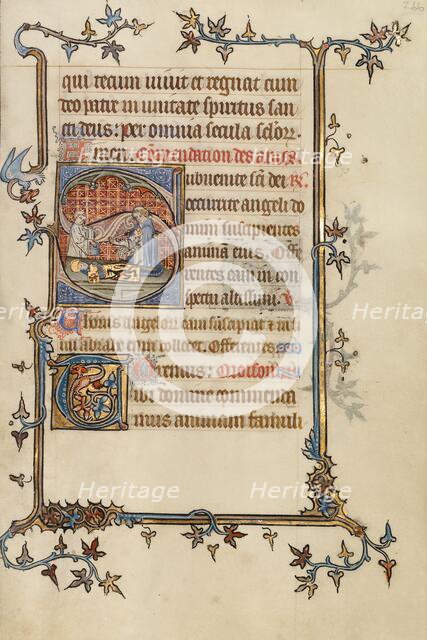 266
qui tecum uiuit et regnat cum
deo patre in unitate spiritus san
cti deus: per omnia secula sclor.
Amen. Comandation des ames
Subuenite sci dei R.
occurite angeli do
mini suscipientes
animam eius. Offe
rentes eam in con
spectu altissimi. V.
Chorus angelor eam suscipiat et in si
nu abrahe eam collocet. Offerentes
Oroison
Tibi domine commenda
mus animam famuli
Heritage
Heritage
Heritage
Heritage
Heritage